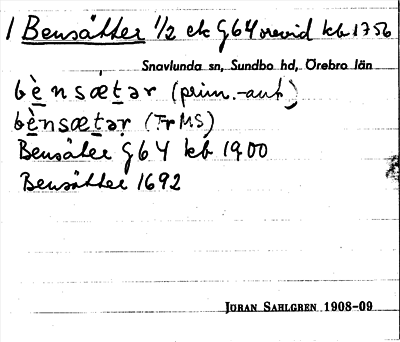 1 Bensätter 1/2 ek G64 orevid kb 1756
Snavlunda sn, Sundbo hd, Örebro län
bè̱nsæt̲ər (prim.-aut.)
bè̱nsæt̲ər (Fr MS)
Bensäter G64 kb 1900
Bensätter 1692
JÖRAN SAHLGREN 1908-09